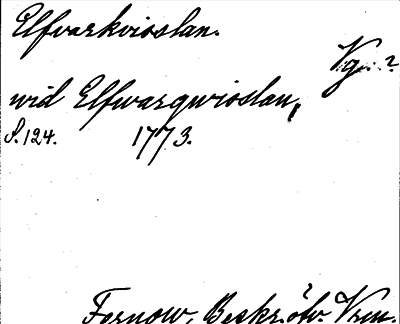 Elfvarkvisslan.
Vg. ?
wid Elfwarqwisslan,
S. 124. 1773.
Fernow, Beskr. öfv. Vrm.